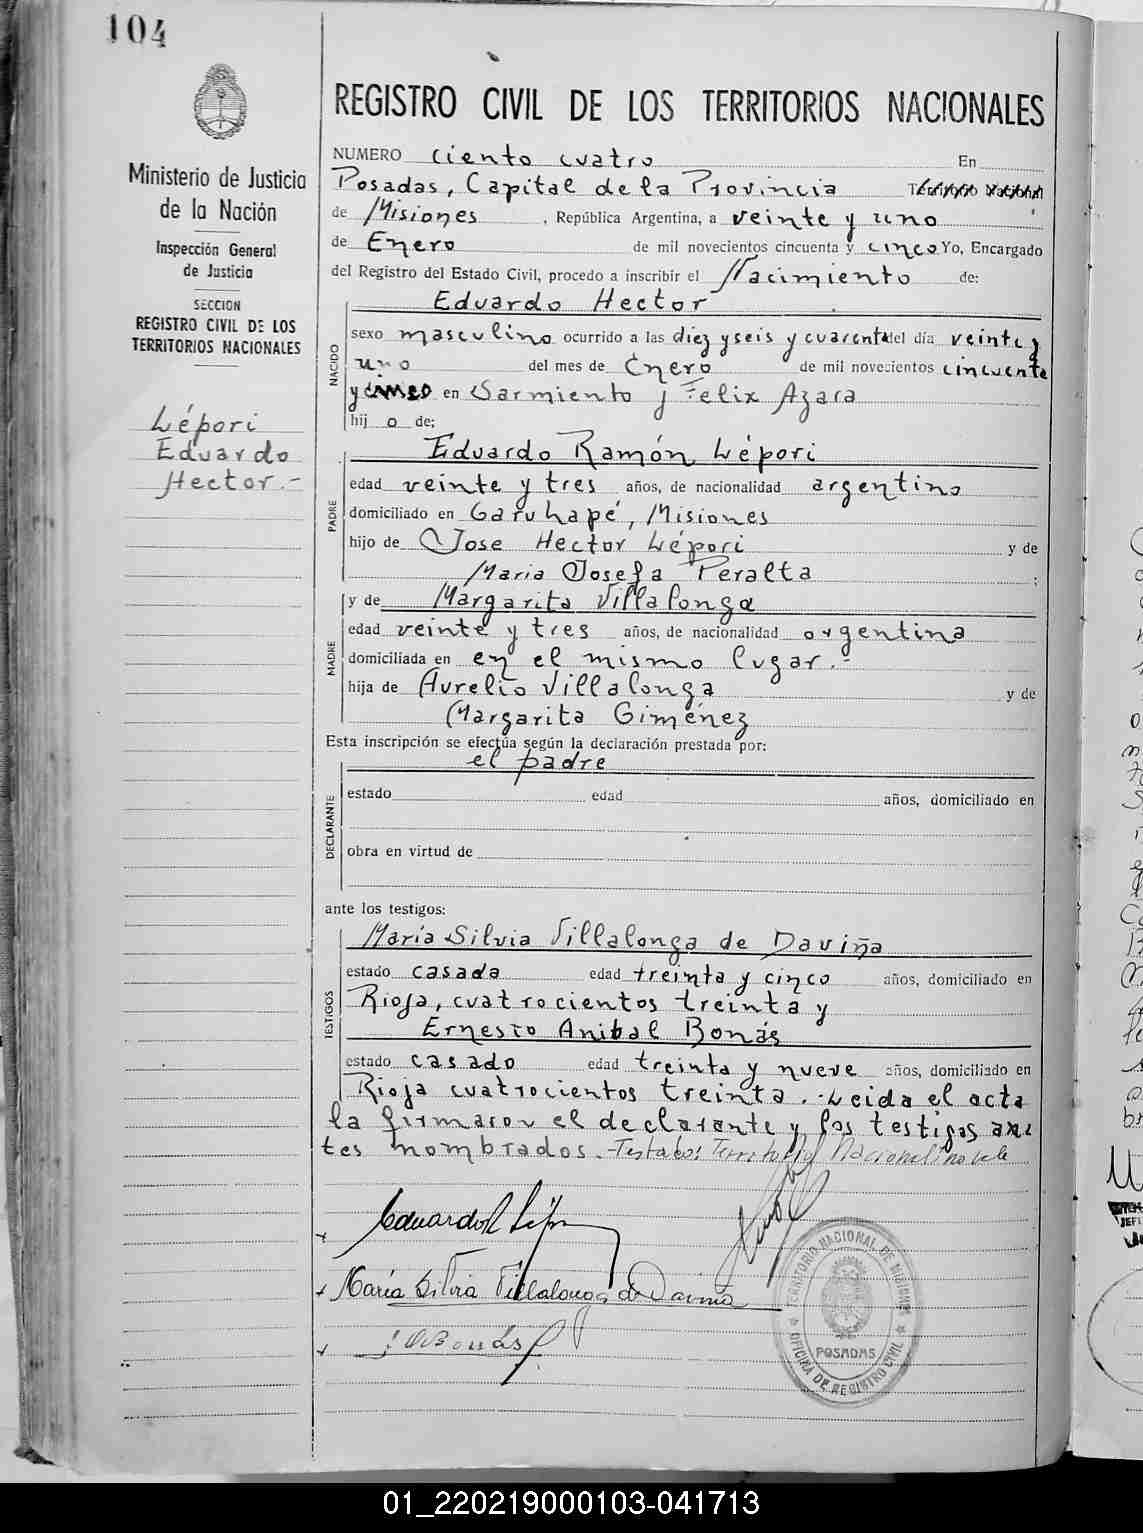 104
Ministerio de Justicia
de la Nación
Inspección General
de Justicia
SECCION
REGISTRO CIVIL DE LOS
TERRITORIOS NACIONALES
Lépori
Eduardo
Hector.-
REGISTRO CIVIL DE LOS TERRITORIOS NACIONALES
NUMERO ciento cuatro En
Posadas, Capital de la Provincia Territorio Nacional
de Misiones, República Argentina, a veinte y uno
de Enero de mil novecientos cincuenta y cinco Yo, Encargado
del Registro del Estado Civil, procedo a inscribir el Nacimiento de:
Eduardo Hector
NACIDO
sexo masculino ocurrido a las diez y seis y cuarenta del día veinte y
uno del mes de Enero de mil novecientos cincuenta
y cinco en Sarmiento y Felix Azara
hij o de;
Eduardo Ramón Lépori
PADRE
edad veinte y tres años, de nacionalidad argentino
domiciliado en Garuhapé, Misiones
hijo de Jose Hector Lépori y de
Maria Josefa Peralta ;
y de Margarita Villalonga
MADRE
edad veinte y tres años, de nacionalidad argentina
domiciliada en en el mismo lugar.-
hija de Aurelio Villalonga y de
Margarita Giménez
Esta inscripción se efectúa según la declaración prestada por:
el padre
DECLARANTE
estado edad años, domiciliado en
obra en virtud de
ante los testigos:
María Silvia Villalonga de Daviña
TESTIGOS
estado casada edad treinta y cinco años, domiciliado en
Rioja, cuatrocientos treinta y
Ernesto Anibal Bonás
estado casado edad treinta y nueve años, domiciliado en
Rioja cuatrocientos treinta.-Leida el acta
la firmaron el declarante y los testigos an
tes nombrados.-Testados: Territorio Nacional: no vale
Eduardo R Lépori
María Silvia Villalonga de Daviña
Bonás
TERRITORIO NACIONAL DE MISIONES
POSADAS
OFICINA DE REGISTRO CIVIL
01_220219000103-041713